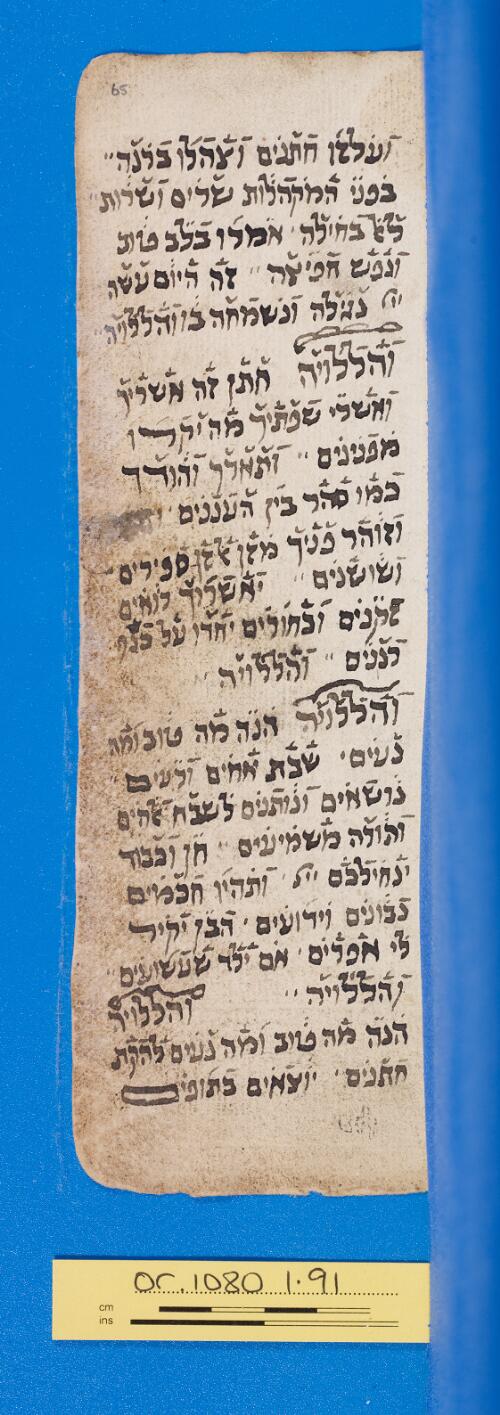 65
ועלזו חתנים וצהלו ברנה
בפני המקהלות שרים ושרות
ללא בחילה אמרו בלב טוב
ונפש חפיצה זה היום עשה
ייי נגילה ונשמחה בו והללויה
והללויה חתן זה אשריך
ואשרי שפתיך מה יקרו
מפנינים ותארך והודך
כמו סהר בין העננים
וזוהר פניך מזן אל זן ספירים
ושושנים ואשריך רואים
זקנים ובחורים יחדו על כנף
רננים והללויה
והללויה הנה מה טוב ומה
נעים שבת אחים ורעים
נושאים ונותנים לשבח אלהים
ותורה משמיעים חן וכבוד
ינחילכם ייי ותהיו חכמים
נבונים וידועים הבן יקיר
לי אפרים אם ילד שעשועים
והללויה והללויה
הנה מה טוב ומה נעים להקת
חתנים יוצאים בתופים
or.1080 1.91
cm
ins